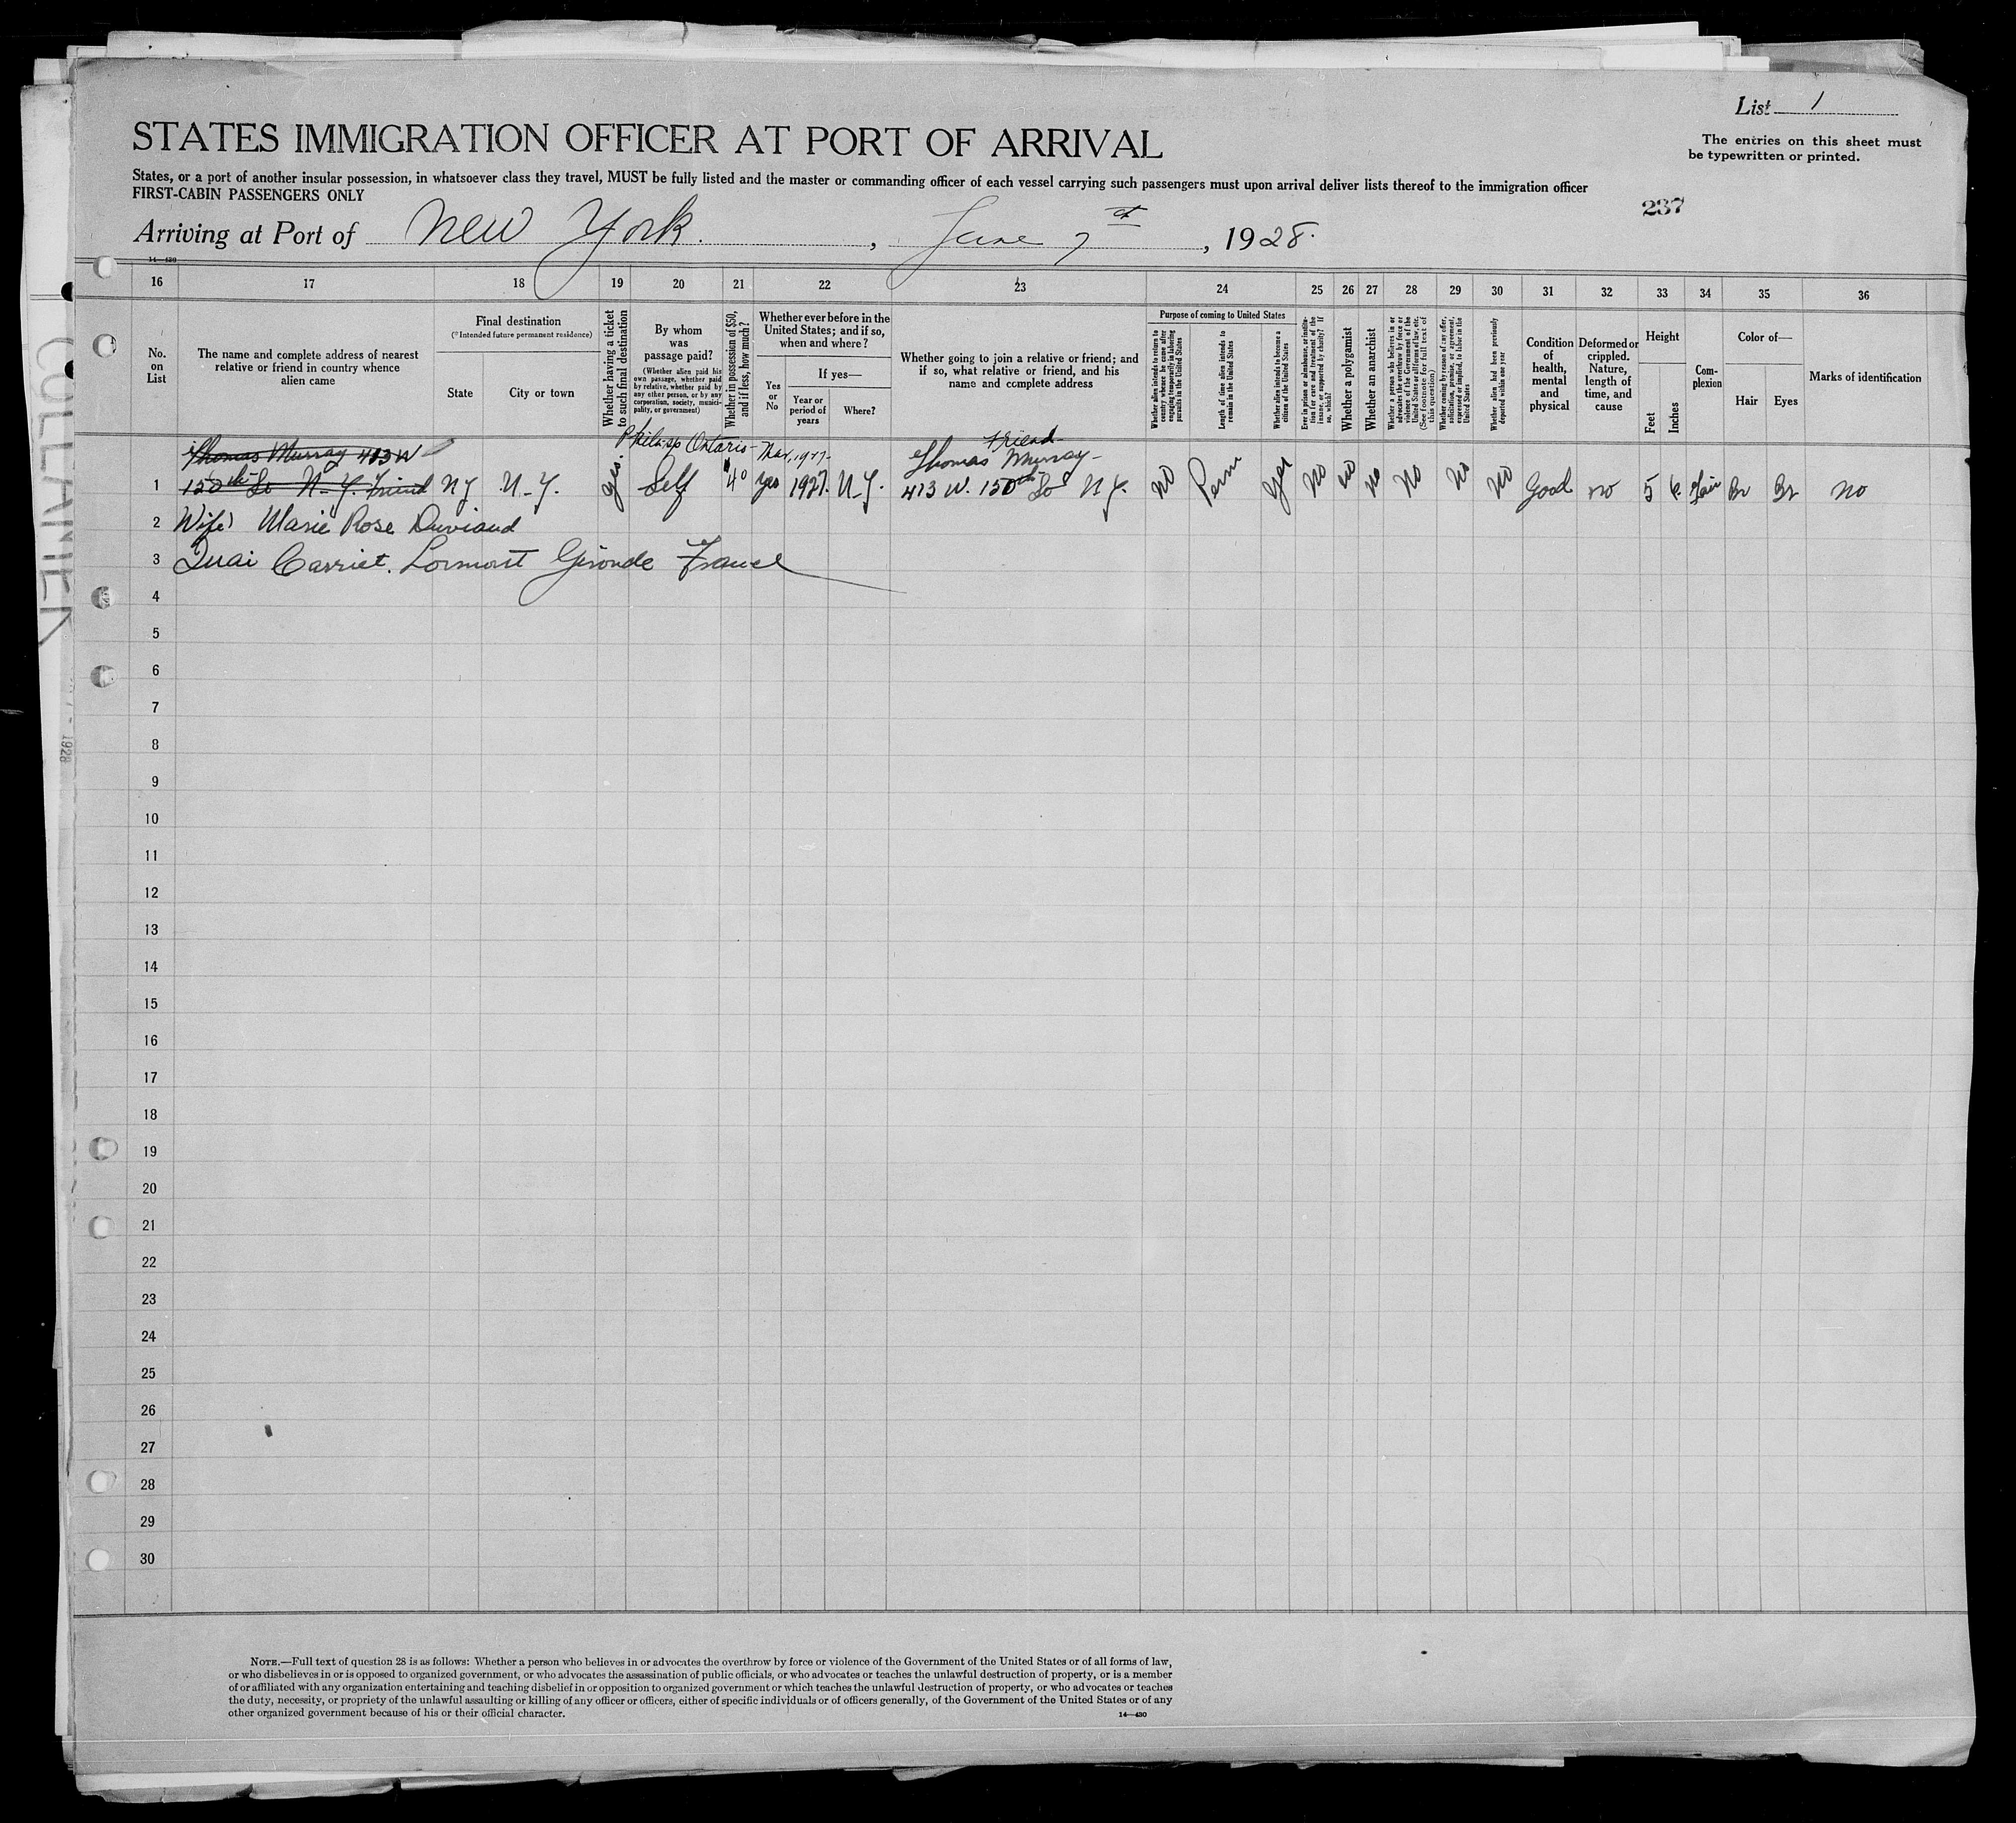 List 1
STATES IMMIGRATION OFFICER AT PORT OF ARRIVAL
The entries on this sheet must
be typewritten or printed.
States, or a port of another insular possession, in whatsoever class they travel, MUST be fully listed and the master or commanding officer of each vessel carrying such passengers must upon arrival deliver lists thereof to the immigration officer
FIRST-CABIN PASSENGERS ONLY
237
Arriving at Port of New York. , June 7 , 1928.
14—430
16 17 18 19 20 21 22 23 24 25 26 27 28 29 30 31 32 33 34 35 36
No. on List
The name and complete address of nearest relative or friend in country whence alien came
Final destination
(*Intended future permanent residence)
State
City or town
Whether having a ticket to such final destination
By whom was passage paid?
(Whether alien paid his own passage, whether paid by relative, whether paid by any other person, or by any corporation, society, municipality, or government)
Whether in possession of $50, and if less, how much?
Whether ever before in the United States; and if so, when and where?
Yes or No
If yes—
Year or period of years
Where?
Whether going to join a relative or friend; and if so, what relative or friend, and his name and complete address
Purpose of coming to United States
Whether alien intends to return to country whence he came after engaging temporarily in laboring pursuits in the United States
Length of time alien intends to remain in the United States
Whether alien intends to become a citizen of the United States
Ever in prison or almshouse, or institution for care and treatment of the insane, or supported by charity? If so, which?
Whether a polygamist
Whether an anarchist
Whether a person who believes in or advocates the overthrow by force or violence of the Government of the United States or all forms of law, etc. (See footnote for full text of this question)
Whether coming by reason of any offer, solicitation, promise, or agreement, expressed or implied, to labor in the United States
Whether alien had been previously deported within one year
Condition of health, mental and physical
Deformed or crippled. Nature, length of time, and cause
Height
Feet
Inches
Com-plexion
Color of—
Hair
Eyes
Marks of identification
Thomas Murray 413 W
Ontario - Mar, 1927-
Friend
Thomas Murray-
1 150th St N-Y. Friend NY N-Y. yes. Self $40 yes 1927. N-Y. 413 W. 150th St N Y. no Perm yes no no no no no no Good no 5 6 Fair Br Br no
2 Wife) Marie Rose Duviaud
3 Quai Carriet. Lormont Gironde France
4
5
6
7
8
9
10
11
12
13
14
15
16
17
18
19
20
21
22
23
24
25
26
27
28
29
30
1928
NOTE.—Full text of question 28 is as follows: Whether a person who believes in or advocates the overthrow by force or violence of the Government of the United States or of all forms of law,
or who disbelieves in or is opposed to organized government, or who advocates the assassination of public officials, or who advocates or teaches the unlawful destruction of property, or is a member
of or affiliated with any organization entertaining and teaching disbelief in or opposition to organized government or which teaches the unlawful destruction of property, or who advocates or teaches
the duty, necessity, or propriety of the unlawful assaulting or killing of any officer or officers, either of specific individuals or of officers generally, of the Government of the United States or of any
other organized government because of his or their official character.
14—430